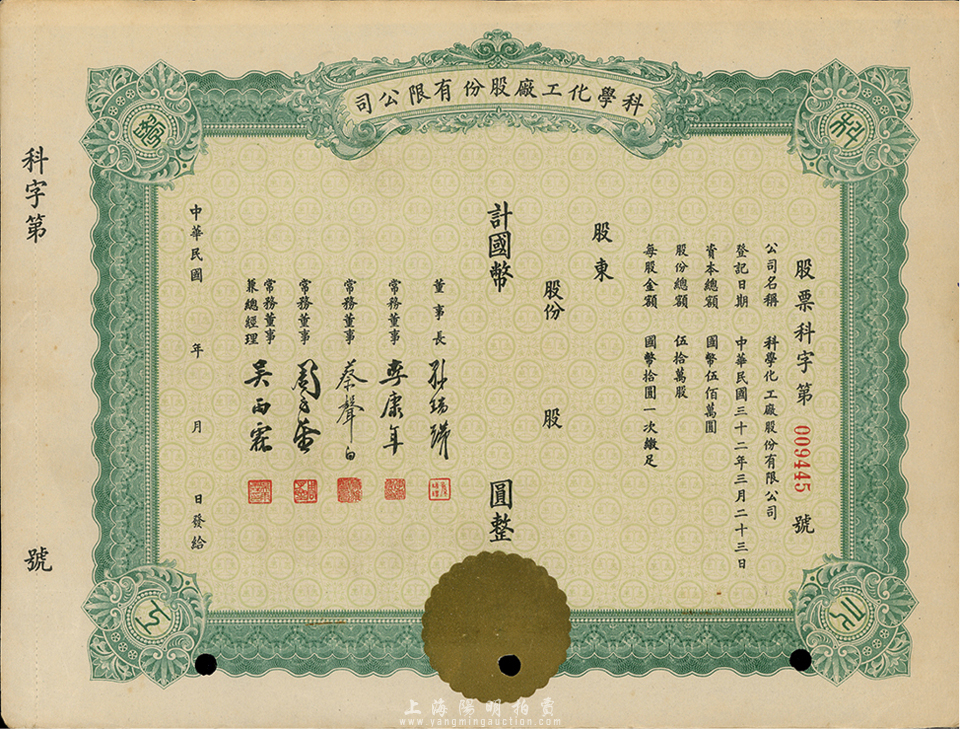 科學化工廠股份有限公司
股票科字第 009445 號
公司名稱 科學化工廠股份有限公司
登記日期 中華民國三十二年三月二十三日
資本總額 國幣伍佰萬圓
股份總額 伍拾萬股
每股金額 國幣拾圓一次繳足
股東
股份 股
計國幣 圓整
董事長
常務董事 李康年
常務董事 蔡聲白
常務董事
常務董事兼總經理 吳雨霖
中華民國 年 月 日發給
科字第 號
科
學
化
工
上海陽明拍賣
www.yangmingauction.com